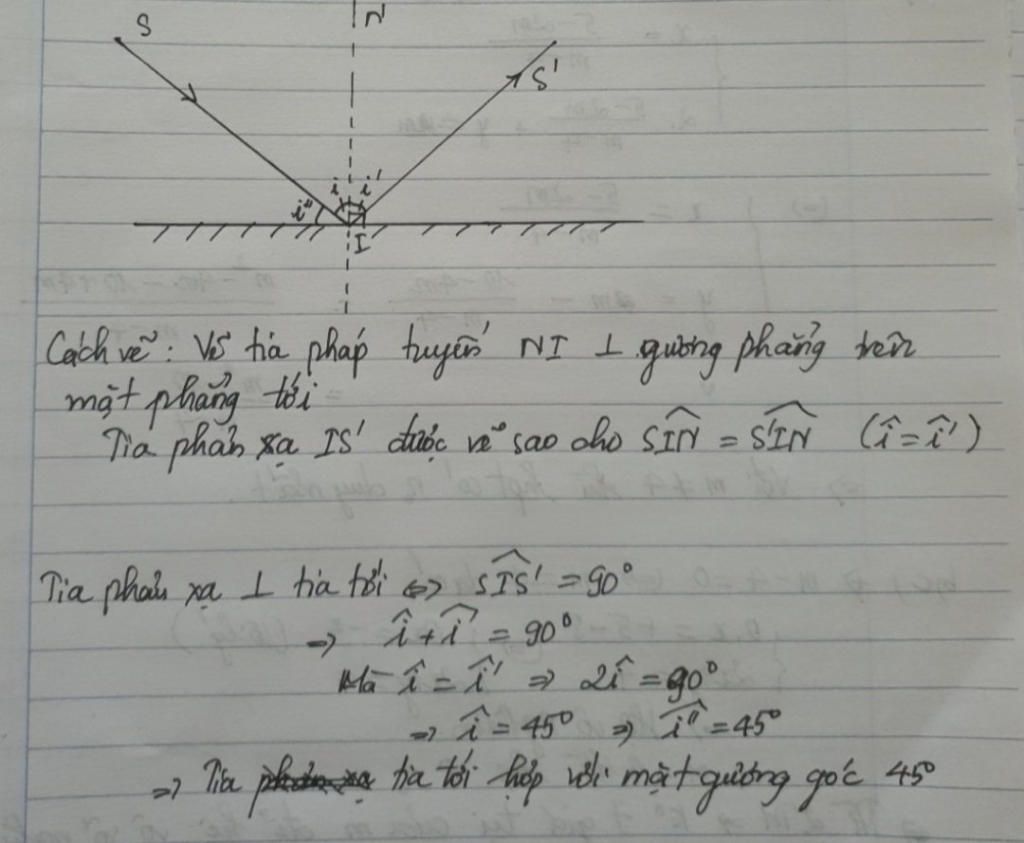 S N S'
i i'
i"
I
Cách vẽ: Vẽ tia pháp tuyến NI ⊥ gương phẳng trên
mặt phẳng tới
Tia phản xạ IS' được vẽ sao cho SIN̂ = S'IN̂ (î = î')
Tia phản xạ ⊥ tia tới ⇔ SIS'̂ = 90°
⇒ î + î' = 90°
Mà î = î' ⇒ 2î = 90°
⇒ î = 45° ⇒ î" = 45°
⇒ Tia tia tới hợp với mặt gương góc 45°